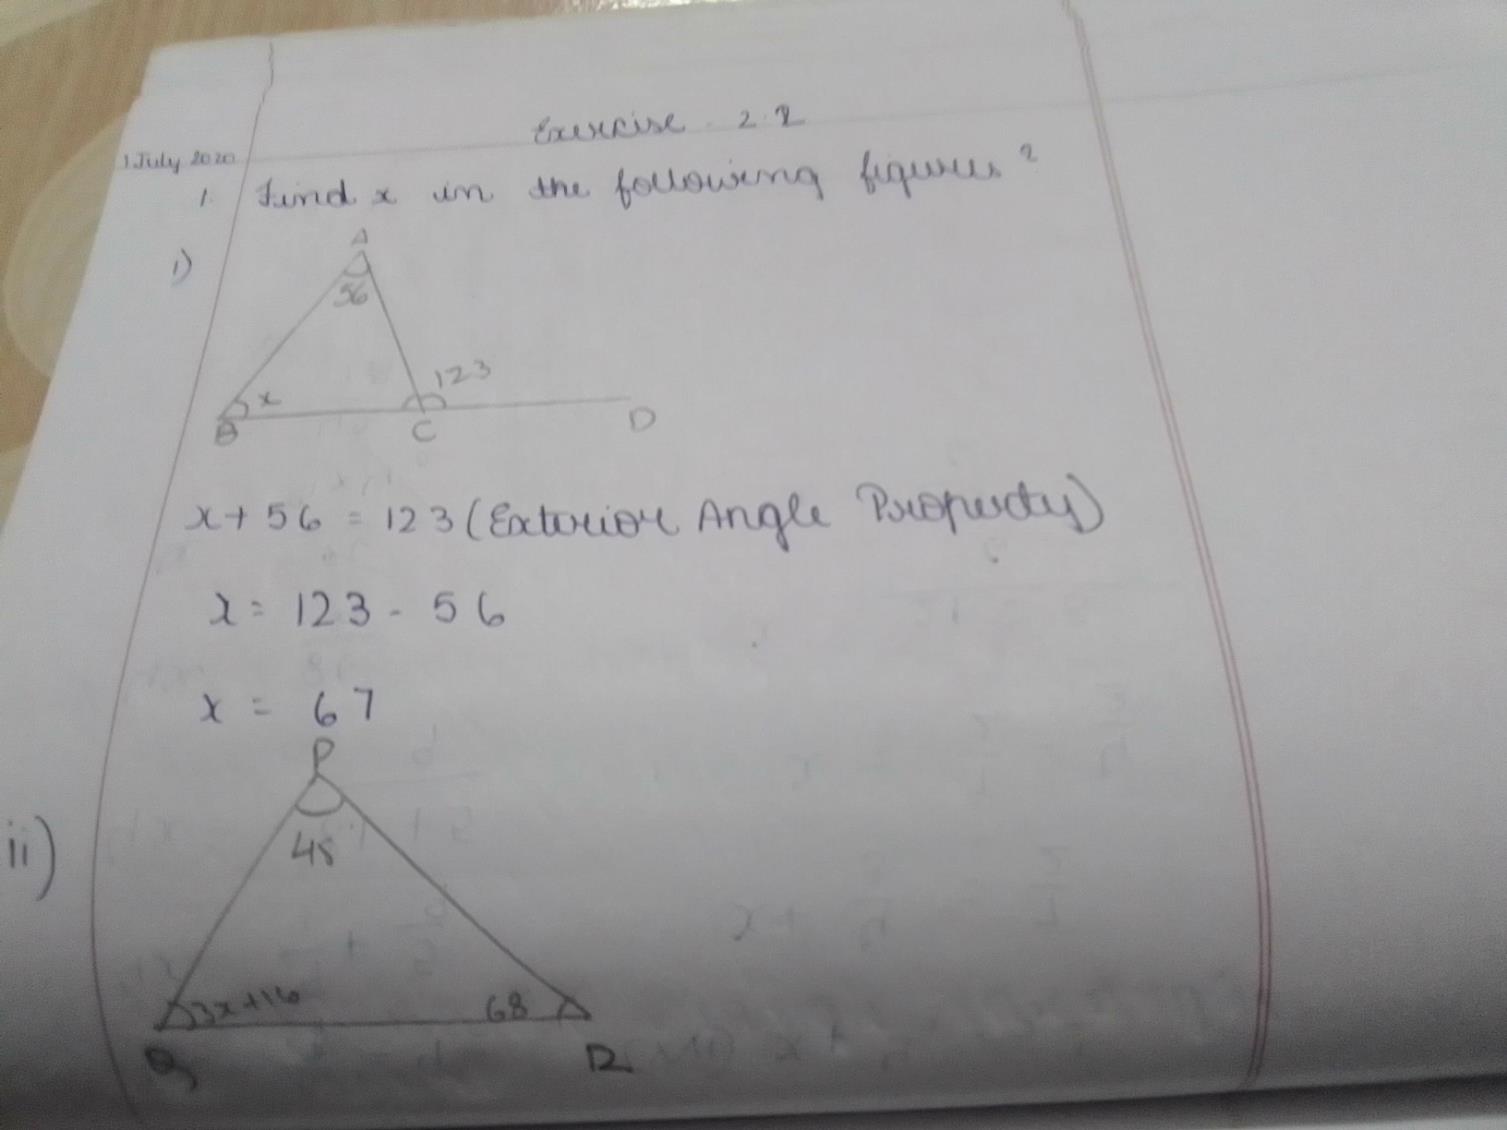 Exercise - 2.2
1 July 2020
1. Find x in the following figures?
i)
A
56
x
123
B
C
D
x + 56 = 123 (Exterior Angle Property)
x = 123 - 56
x = 67
ii)
P
48
3x+16
68
Q
R